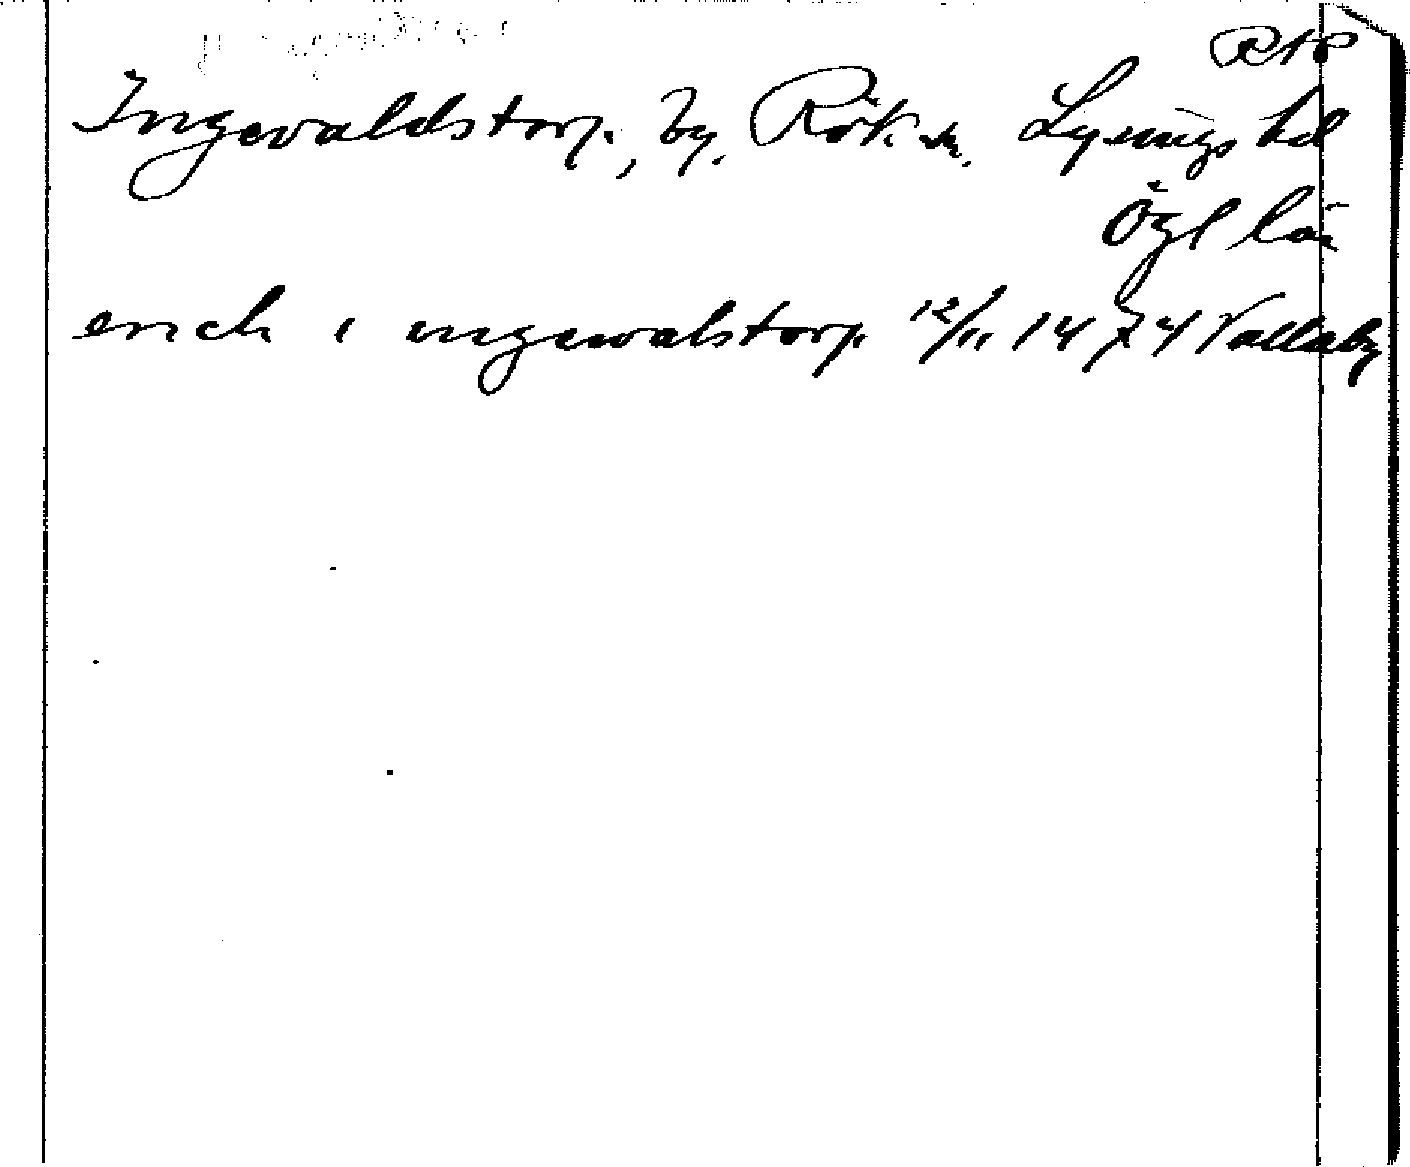 RAP
Ingevaldstorp, by, Rök sn. Lysings hd
Ögl län
erich i ingewalstorp 12/11 1474 Vallaby